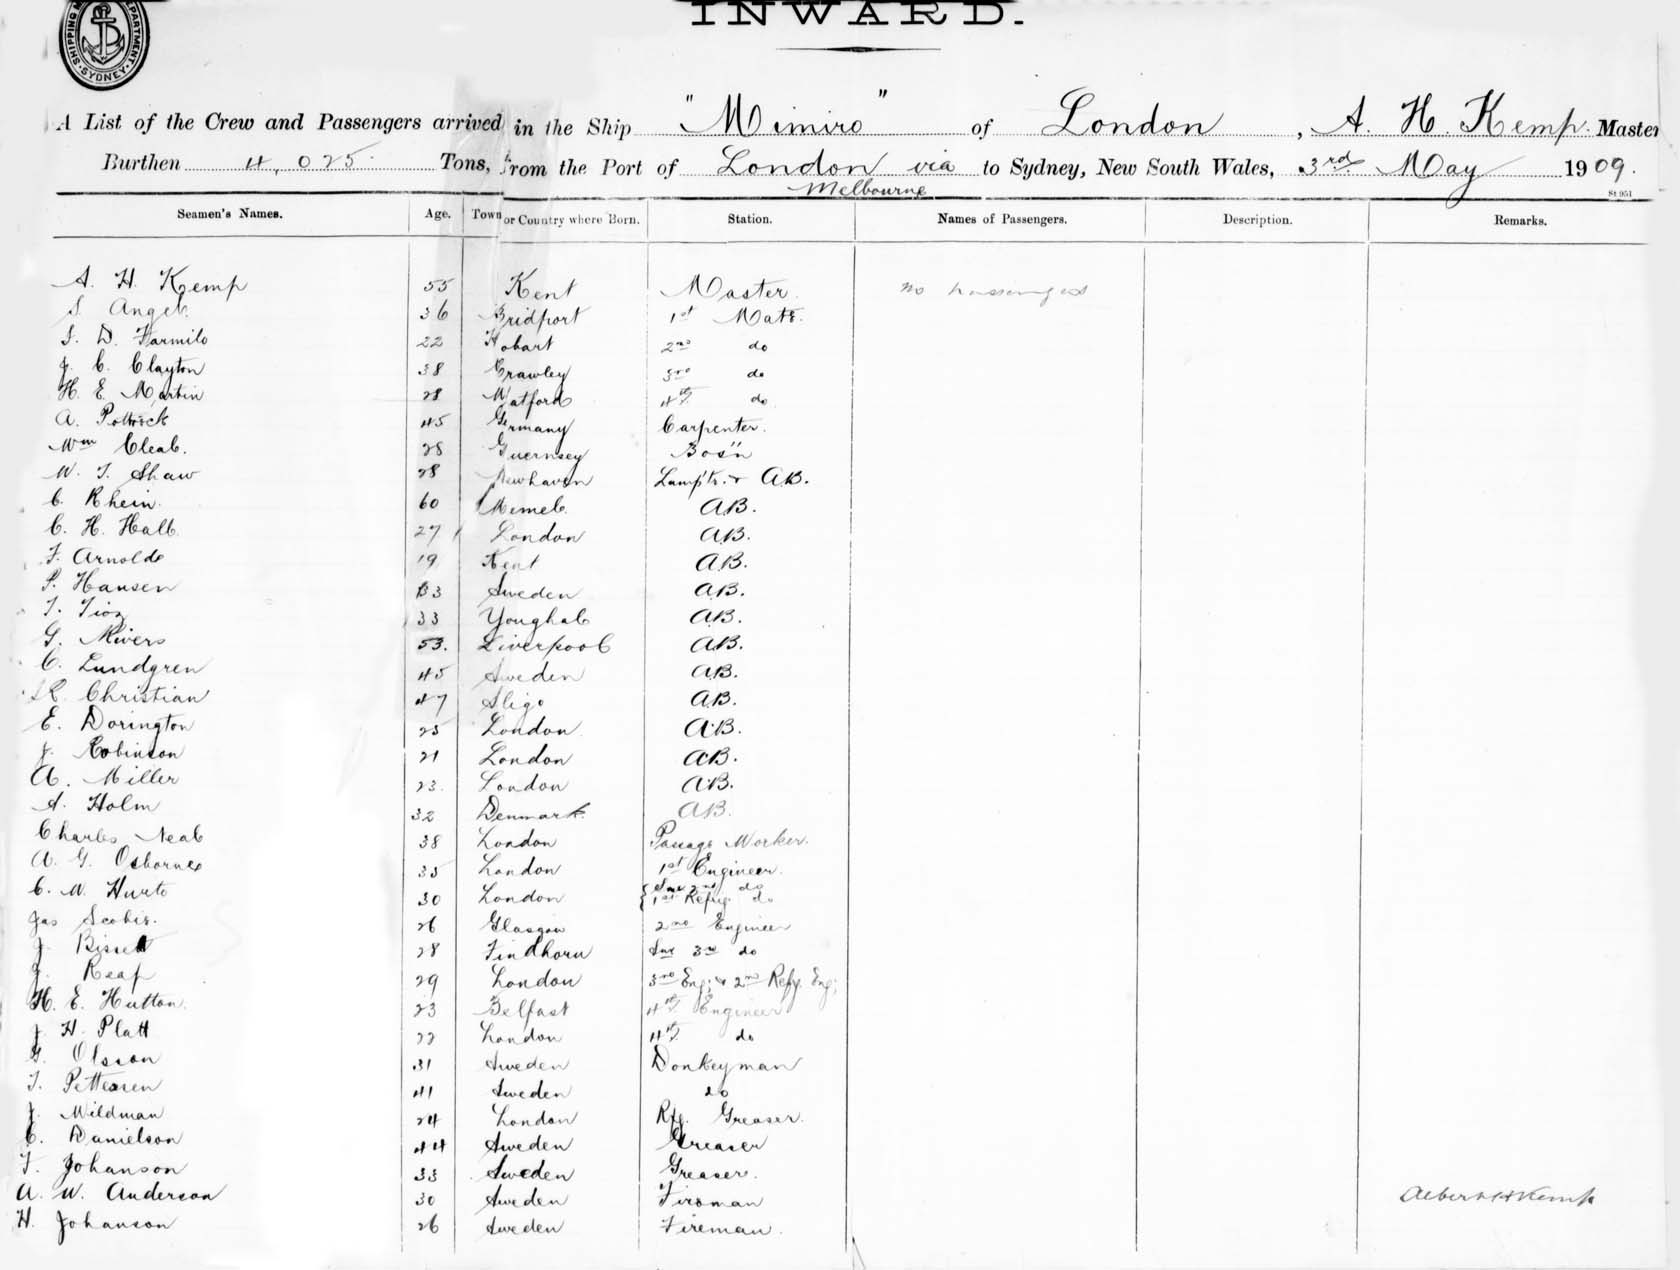 SHIPPING DEPARTMENT SYDNEY
INWARD.
A List of the Crew and Passengers arrived in the Ship "Mimiro" of London, A. H. Kemp. Master
Burthen 4,025 Tons, from the Port of London via to Sydney, New South Wales, 3rd May 1909.
Melbourne
St 951
Seamen's Names. Age. Town or Country where Born. Station. Names of Passengers. Description. Remarks.
A. H. Kemp 55 Kent Master. no passengers
S. Angel. 36 Bridport 1st Mate.
S. D. Farmilo 22 Hobart 2nd do
J. C. Clayton 38 Crawley 3rd do
H. E. Martin 28 Watford 4th do
A. 45 Germany Carpenter.
Wm Cleal. 28 Guernsey Bos'n
W. T. Shaw 28 Newhaven Lamp'tr. & AB.
C. Rhein. 60 Memel. AB.
C. H. Hall 27 London AB.
F. Arnold 19 Kent AB.
P. Hansen 33 Sweden AB.
T. 33 Youghal AB.
G. Rivers 53. Liverpool AB.
C. Lundgren 45 Sweden AB.
Christian 47 Sligo AB.
E. Dorington 25 London AB.
J. Robinson 21 London AB.
A. Miller 23. London AB.
A. Holm 32 Denmark. AB.
Charles Neal 38 London Passage Worker.
A. G. Osborne 35 London 1st Engineer.
C. W. 30 London { Snr 2nd do
1st Refrig do
Jas Scobie. 26 Glasgow 2nd Engineer
J. Bissett 28 Findhorn Snr 3rd do
J. Reap 29 London 3rd Eng; & 2nd Refg. Eng;
H. E. Hutton. 23 Belfast 4th Engineer
J. H. Platt 22 London 4th do
G. Olsson 31 Sweden Donkeyman
T. Pettersen 41 Sweden do
J. Wildman 24 London Rfg. Greaser.
C. Danielson 44 Sweden Greaser
F. Johanson 33 Sweden Greaser.
A. W. Anderson 30 Sweden Fireman Albert H Kemp
H. Johanson 26 Sweden Fireman.